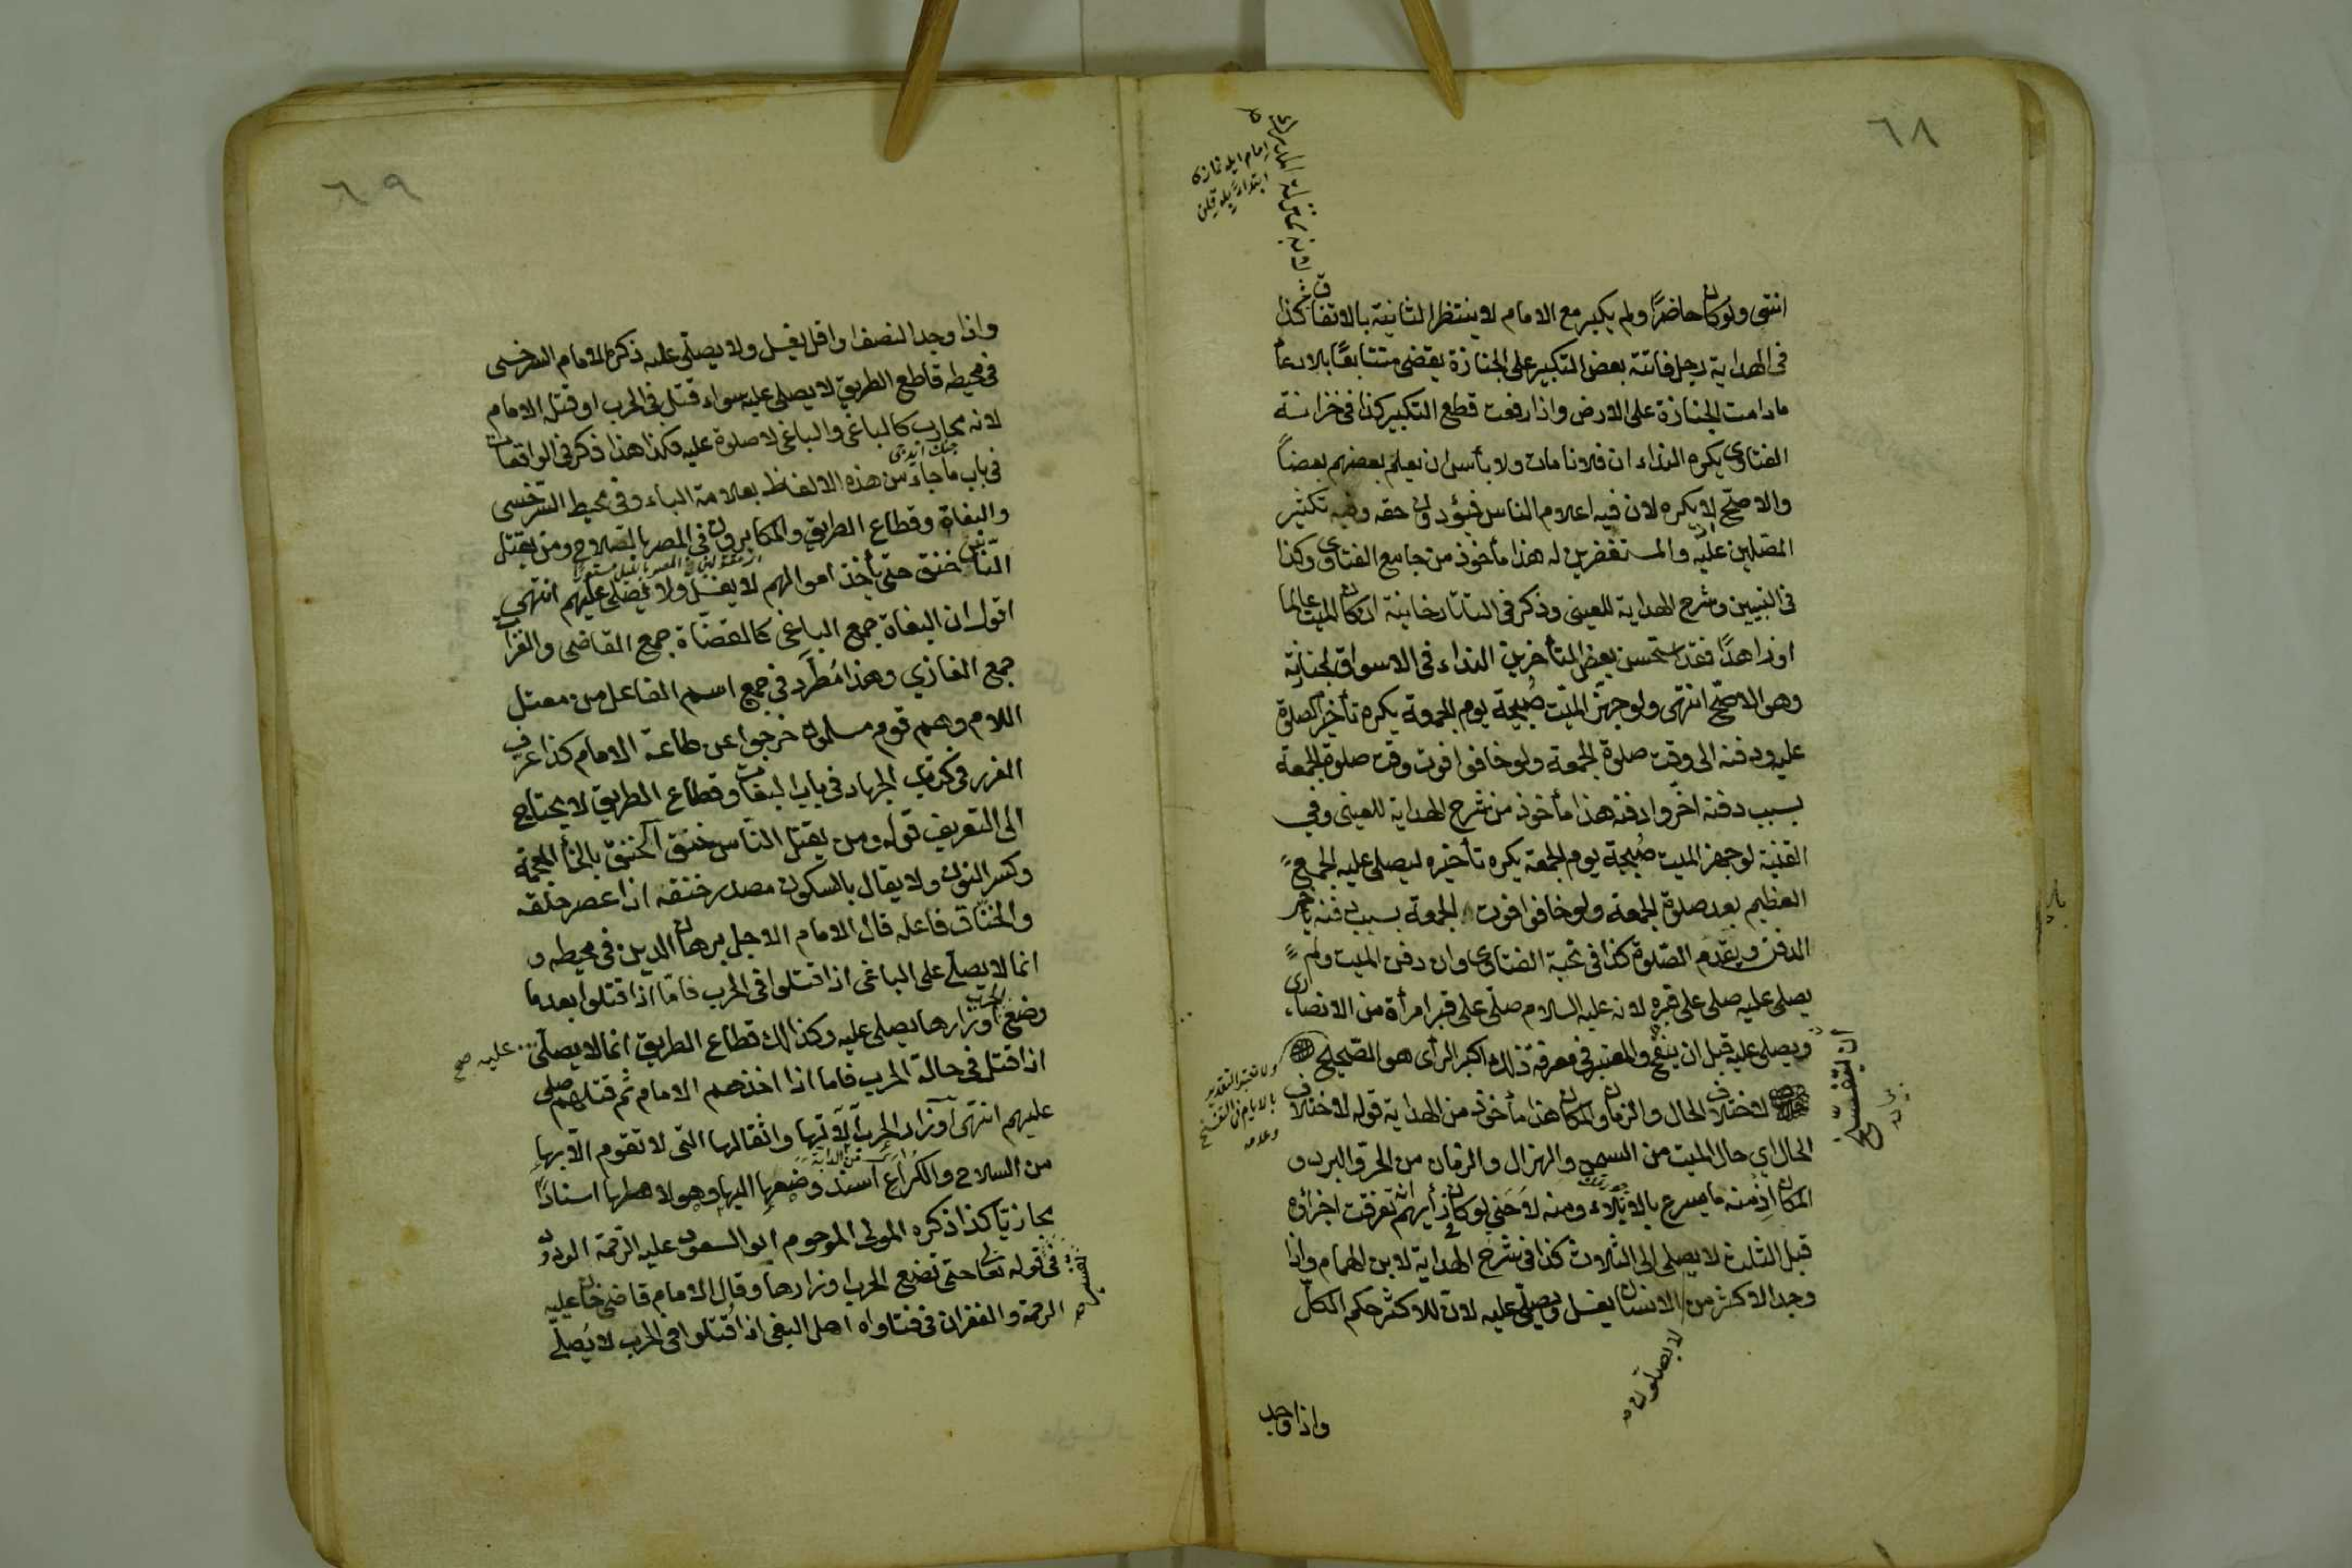 ٦٨
انتهى ولو كان حاضرًا ولم يكبر مع الامام لا ينتظر الثانية بالاتفاق كذا
فى الهداية رجل فاتته بعض التكبير على الجنازة يقضى متتابعًا بلا دعاء
مادامت الجنازة على الارض واذا رفعت قطع التكبير كذا فى خزانة
الفتاوى يكره النداء ان فلانا مات ولا بأس ان يعلم بعضهم بعضاً
والاصحّ لا يكره لان فيه اعلام الناس فيؤدون حقه وفيه تكثير
المصّلين عليه والمستغفرين له هذا مأخوذ من جامع الفتاوى وكذا
فى التبيين وشرح الهداية للعينى وذكر فى التاتارخانية ان كان الميت عالما
او زاهدًا فقد استحسن بعض المتأخرين النداء فى الاسواق لجنازته
وهو الاصحّ انتهى ولو جهّز الميّت صُبيحة يوم الجمعة يكره تأخير الصلوة
عليه ودفنه الى وقت صلوة الجمعة ولو خافوا فوت وقت صلوة الجمعة
بسبب دفنه اخّروا دفنه هذا مأخوذ من شرح الهداية للعينى وفي
القنية لو جهز الميت صُبيحة يوم الجمعة يكره تأخيره ليصلى عليه الجمع
العظيم بعد صلوة الجمعة ولو خافوا فوت الجمعة بسبب دفنه يأخر
الدفن ويقدم الصّلوة كذا فى نخبة الفتاوى وان دفن الميت ولم
يصلى عليه صلى على قبره لانه عليه السلام صلّى على قبر امرأة من الانصارى
ويصلى عليه قبل ان يتفسخ والمعتبر فى معرفة ذلك اكبر الرأى هو الصّحيح
لاختلاف الحال والزمان والمكان هذا مأخوذ من الهداية قوله لاختلاف
الحال اي حال الميت من السمن والهزال والزمان من الحر والبرد و
المكان اذ منه ما يسرع بالابلاء ومنه لا حتى لو كان رأيهم انه تفرقت اجزاؤه
قبل الثلث لا يصلى الى الثلاث كذا فى شرح الهداية لابن الهمام واذا
وجد الاكثر من الانسان يغسل ويصلّى عليه لان للاكثر حكم الكلّ
لا يصلون
ولا تعتبر التقدير
بالايام فى التفسخ
وعدمه
امام ايله نمازه
واذا وجد
٦٩
واذا وجد النصف او اقل يغسل ولا يصلّى عليه ذكره الامام السرخسى
فى محيطه قاطع الطريق لا يصلى عليه سواء قتل فى الحرب او قتله الامام
لانه محارب كالباغى والباغى لا صلوة عليه هكذا هذا ذكر فى الواقعات
فى باب ما جاء من هذه الالفاظ بعلامة الباء وفى محيط السّرخسى
والبغاة وقطاع الطريق والمكابرون فى المصر بالسّلاح ومن يقتل
النّاس خنق حتى يأخذ اموالهم لا يغسل ولا يصلى عليهم انتهى
اقول ان البغاة جمع الباغى كالقضاة جمع القاضى والغزاة
جمع الغازي وهذا مُطّرد فى جمع اسم الفاعل من معتل
اللام وهم قوم مسلمون خرجوا عن طاعة الامام كذا عرف
الغرر فى كتاب الجهاد فى باب البغاة وقطاع الطريق لا يحتاج
الى التعريف قوله ومن يقتل النّاس خنق الخنق بالخاء المعجمة
وكسر النون ولا يقال بالسكون مصدر خنقه اذا عصر حلقه
والخناق فاعله قال الامام الاجل برهان الدين فى محيطه و
انما لا يصلّى على الباغى اذا قتلوا فى الحرب فامّا اذا قتلوا بعد ما
وضع الحرب اوزارها يصلى عليه وكذلك قطاع الطريق انما لا يصلّى عليه صح
اذا قتل فى حالة الحرب فاما اذا اخذهم الامام ثم قتلهم صلى
عليهم انتهى اوزار الحرب آلاتها واثقالها التى لا تقوم الا بها
من السلاح والكراع اسند وضعها اليها وهو لاهلها اسنادًا
مجازيّا كذا ذكره المولى المرحوم ابو السعود عليه الرّحمة الودود
فى قوله تعالى حتى تضع الحرب اوزارها وقال الامام قاضى خان عليه
الرحمة والغفران فى فتاواه اهل البغى اذا قُتلوا فى الحرب لا يُصلّى